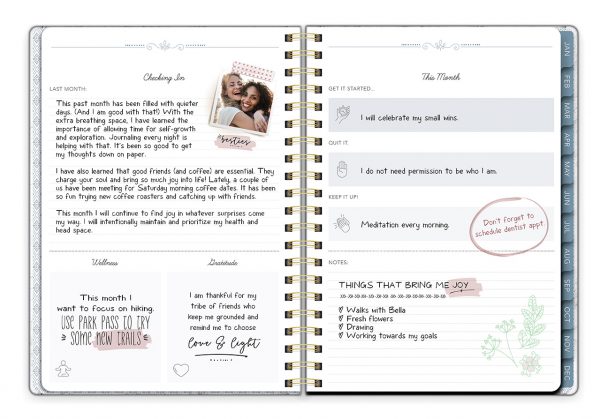 Checking In
LAST MONTH:
This past month has been filled with quieter
days. (And I am good with that!) With the
extra breathing space, I have learned the
importance of allowing time for self-growth
and exploration. Journaling every night is
helping with that. It's been so good to get
my thoughts down on paper.
I have also learned that good friends (and coffee) are essential. They
charge your soul and bring so much joy into life! Lately, a couple of
us have been meeting for Saturday morning coffee dates. It has been
so fun trying new coffee roasters and catching up with friends.
This month I will continue to find joy in whatever surprises come
my way. I will intentionally maintain and prioritize my health and
head space.
#besties
Wellness
This month I
want to focus on hiking.
USE PARK PASS TO TRY
SOME NEW TRAILS
Gratitude
I am thankful for my
tribe of friends who
keep me grounded and
remind me to choose
love & light
This Month
GET IT STARTED...
I will celebrate my small wins.
QUIT IT.
I do not need permission to be who I am.
KEEP IT UP!
Meditation every morning.
Don't forget to
schedule dentist appt
NOTES:
THINGS THAT BRING ME JOY
Walks with Bella
Fresh flowers
Drawing
Working towards my goals
JAN
FEB
MAR
APR
MAY
JUN
JUL
AUG
SEP
OCT
NOV
DEC